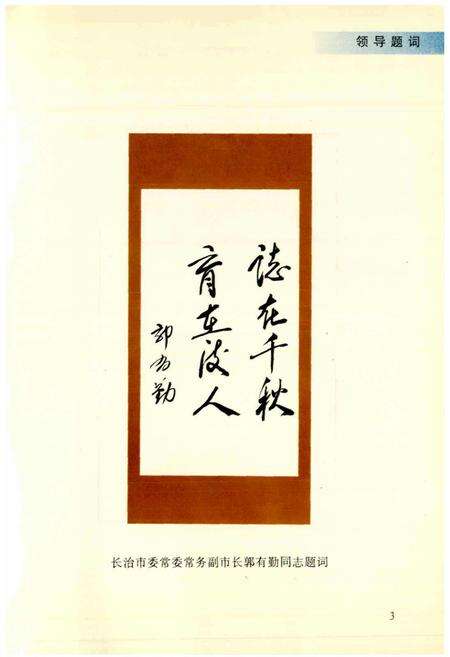 领导题词
誌在千秋
育在後人
郭有勤
长治市委常委常务副市长郭有勤同志题词
3